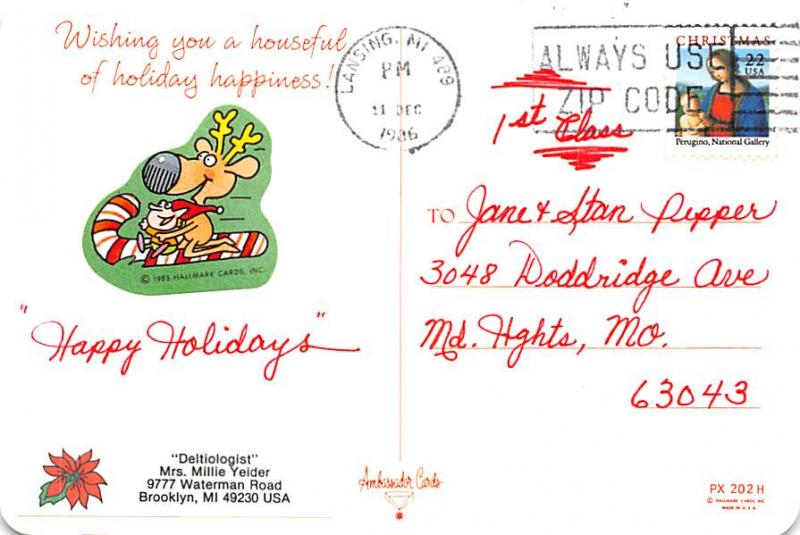 Wishing you a houseful
of holiday happiness!
LANSING, MI 489
PM
11 DEC
1986
ALWAYS USE
ZIP CODE
CHRISTMAS
22
USA
Perugino, National Gallery
1st Class
© 1985 HALLMARK CARDS, INC.
TO Jane & Stan Pepper
3048 Doddridge Ave
Md. Hghts, Mo.
63043
"Happy Holidays"
"Deltiologist"
Mrs. Millie Yeider
9777 Waterman Road
Brooklyn, MI 49230 USA
Ambassador Cards
PX 202 H
© HALLMARK CARDS, INC.
MADE IN U.S.A.